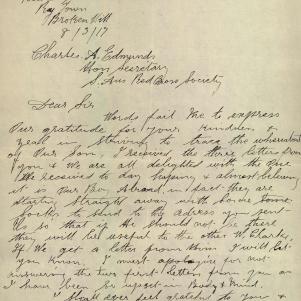 Ray Town
Broken Hill
8/3/17
Charles. A. Edmunds
Hon Secretary
S. Aus Red Cross Society
Dear Sir
Words fail me to express
Our gratitude for your kindness &
in striving to trace the whereabouts
of Our Son, I received the three letters from
you & We are all delighted with the
We received to day hoping & almost believing
it is Our Boy in fact they are
starting straight away with some
to send to the adress you sent
us so that if he should not be there
they will be useful to the other
if We get a letter from them I will let
you Know. I must apologize for not
answering the two first letters from you as
I have been so upset in Body & Mind.
I shall ever feel grateful to you &